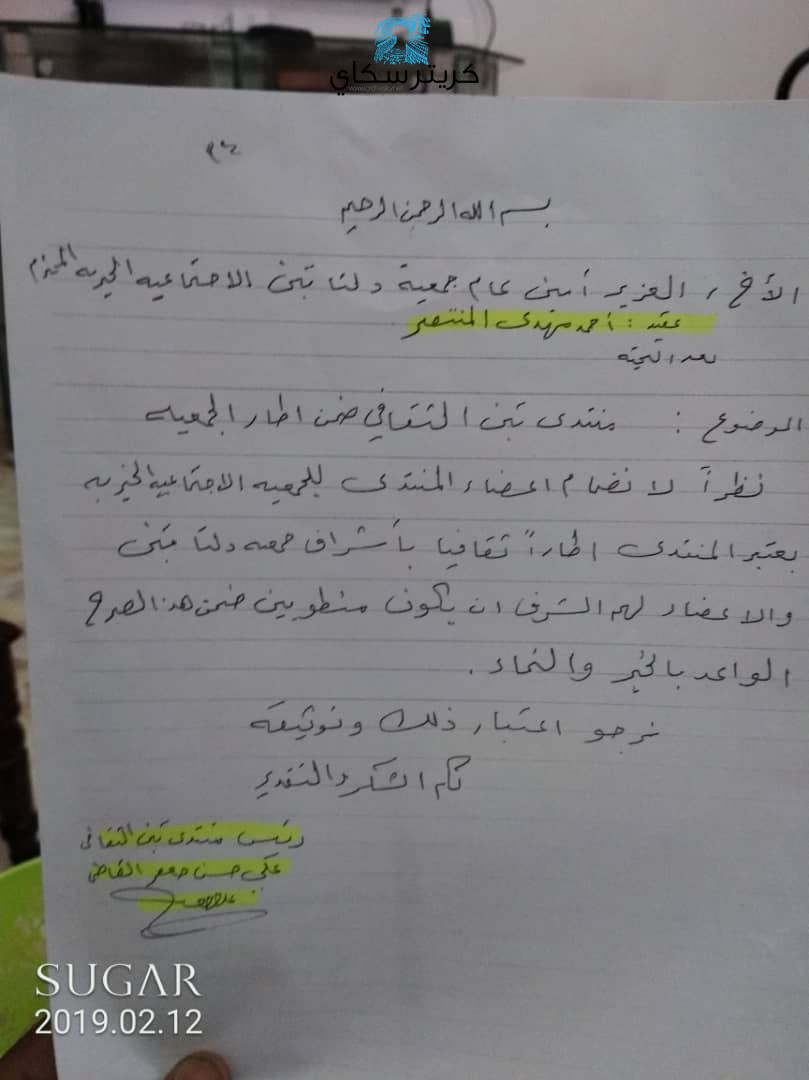 كريتر سكاي
بسم الله الرحمن الرحيم
الأخ / العزيز أمين عام جمعية دلتا تبن الاجتماعيه الخيريه المحترم
عقيد : احمد مهدي المنتصر
بعد التحيه
الموضوع : منتدى تبن الثقافي ضمن اطار الجمعيه
نظراً لانضمام اعضاء المنتدى للجمعيه الاجتماعيه الخيريه
يعتبر المنتدى اطاراً ثقافيا بأشراف جمعيه دلتا تبن
والاعضاء لهم الشرف ان يكون منطويين ضمن هذا الصرح
الواعد بالخير والنماء .
نرجو اعتبار ذلك وتوثيقه
لكم الشكر والتقدير
رئيس منتدى تبن الثقافي
علي حسن جعفر القاضي
SUGAR
2019.02.12